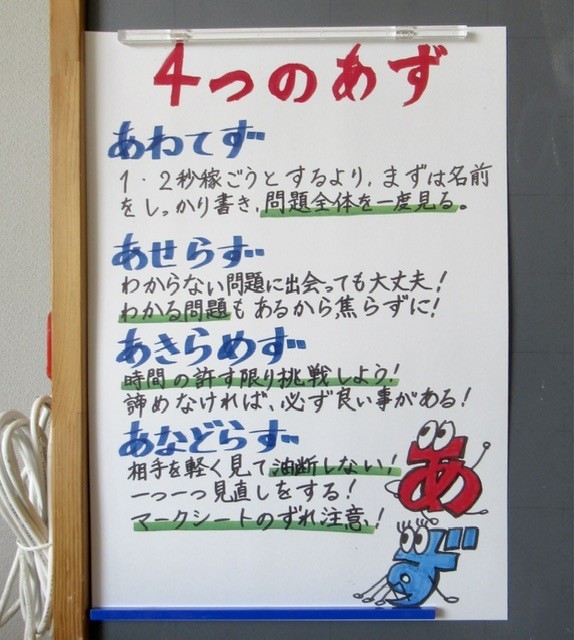 4つのあず
あわてず…
1・2秒稼ごうとするより、まずは名前
をしっかり書き、問題全体を一度見る。
あせらず…
わからない問題に出会っても大丈夫！
わかる問題もあるから焦らずに！
あきらめず…
時間の許す限り挑戦しよう！
諦めなければ、必ず良い事がある！
あなどらず…
相手を軽く見て油断しない！
一つ一つ見直しをする！
マークシートのずれ注意！
あ
ず